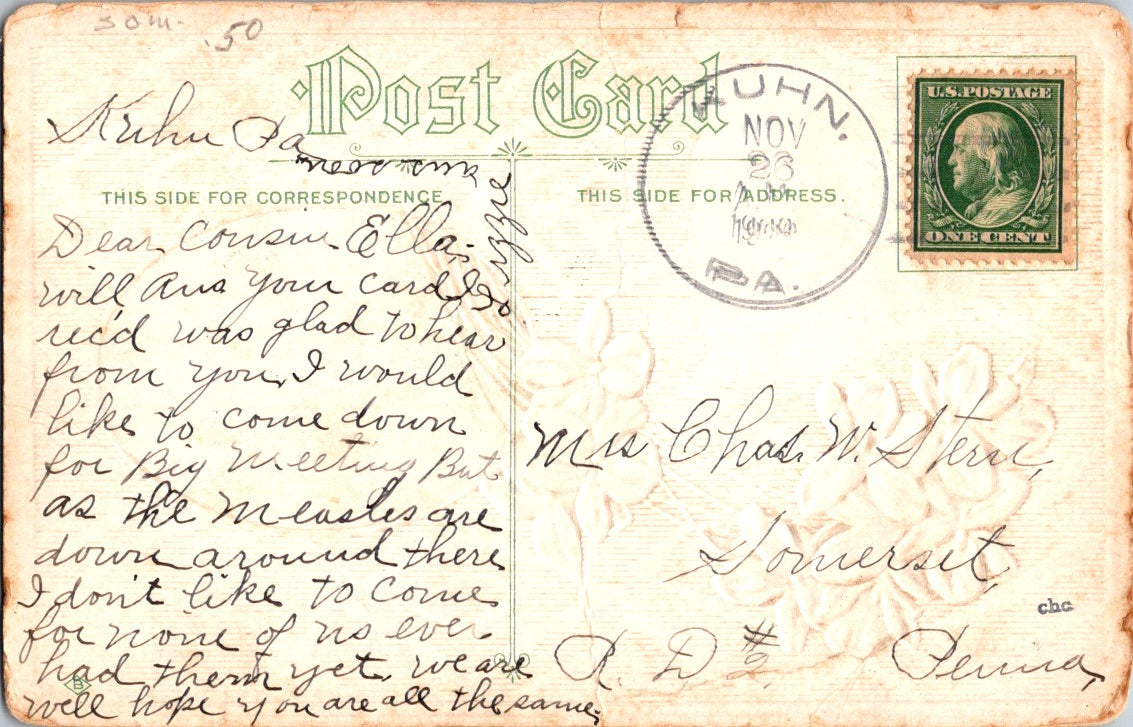 som.
.50
Post Card
KUHN.
NOV
26
PA.
U.S. POSTAGE
ONE CENT
THIS SIDE FOR CORRESPONDENCE
THIS SIDE FOR ADDRESS.
Kuhn Pa
Dear Cousin Ella.
will Ans your card
rec'd was glad to hear
from you, I would
like to come down
for Big Meeting But
as the Measles are
down around there
I don't like to come
for none of us ever
had them yet. we are
well hope you are all the same,
ans soon
Lizzie
Mrs Chas. W. Stern,
Somerset,
R. D #2. Penna,
chc
B